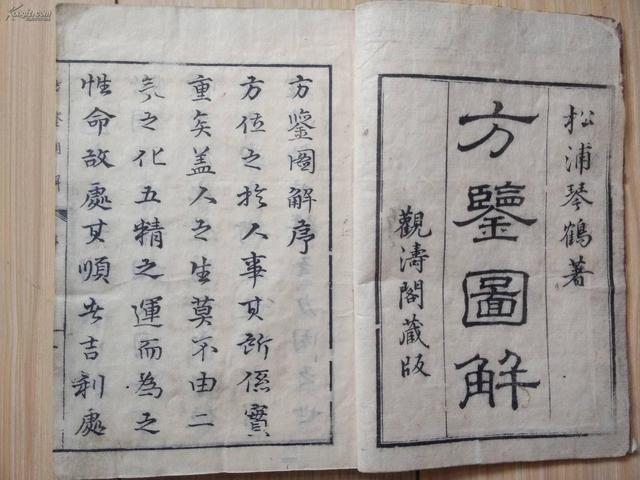 松浦琴鶴著
方鑒圖解
觀濤閣藏版
方鑒圖解序
方位之於人事其所係實
重矣蓋人之生莫不由二
氣之化五精之運而為之
性命故處其順者吉利處
Kongfz.com